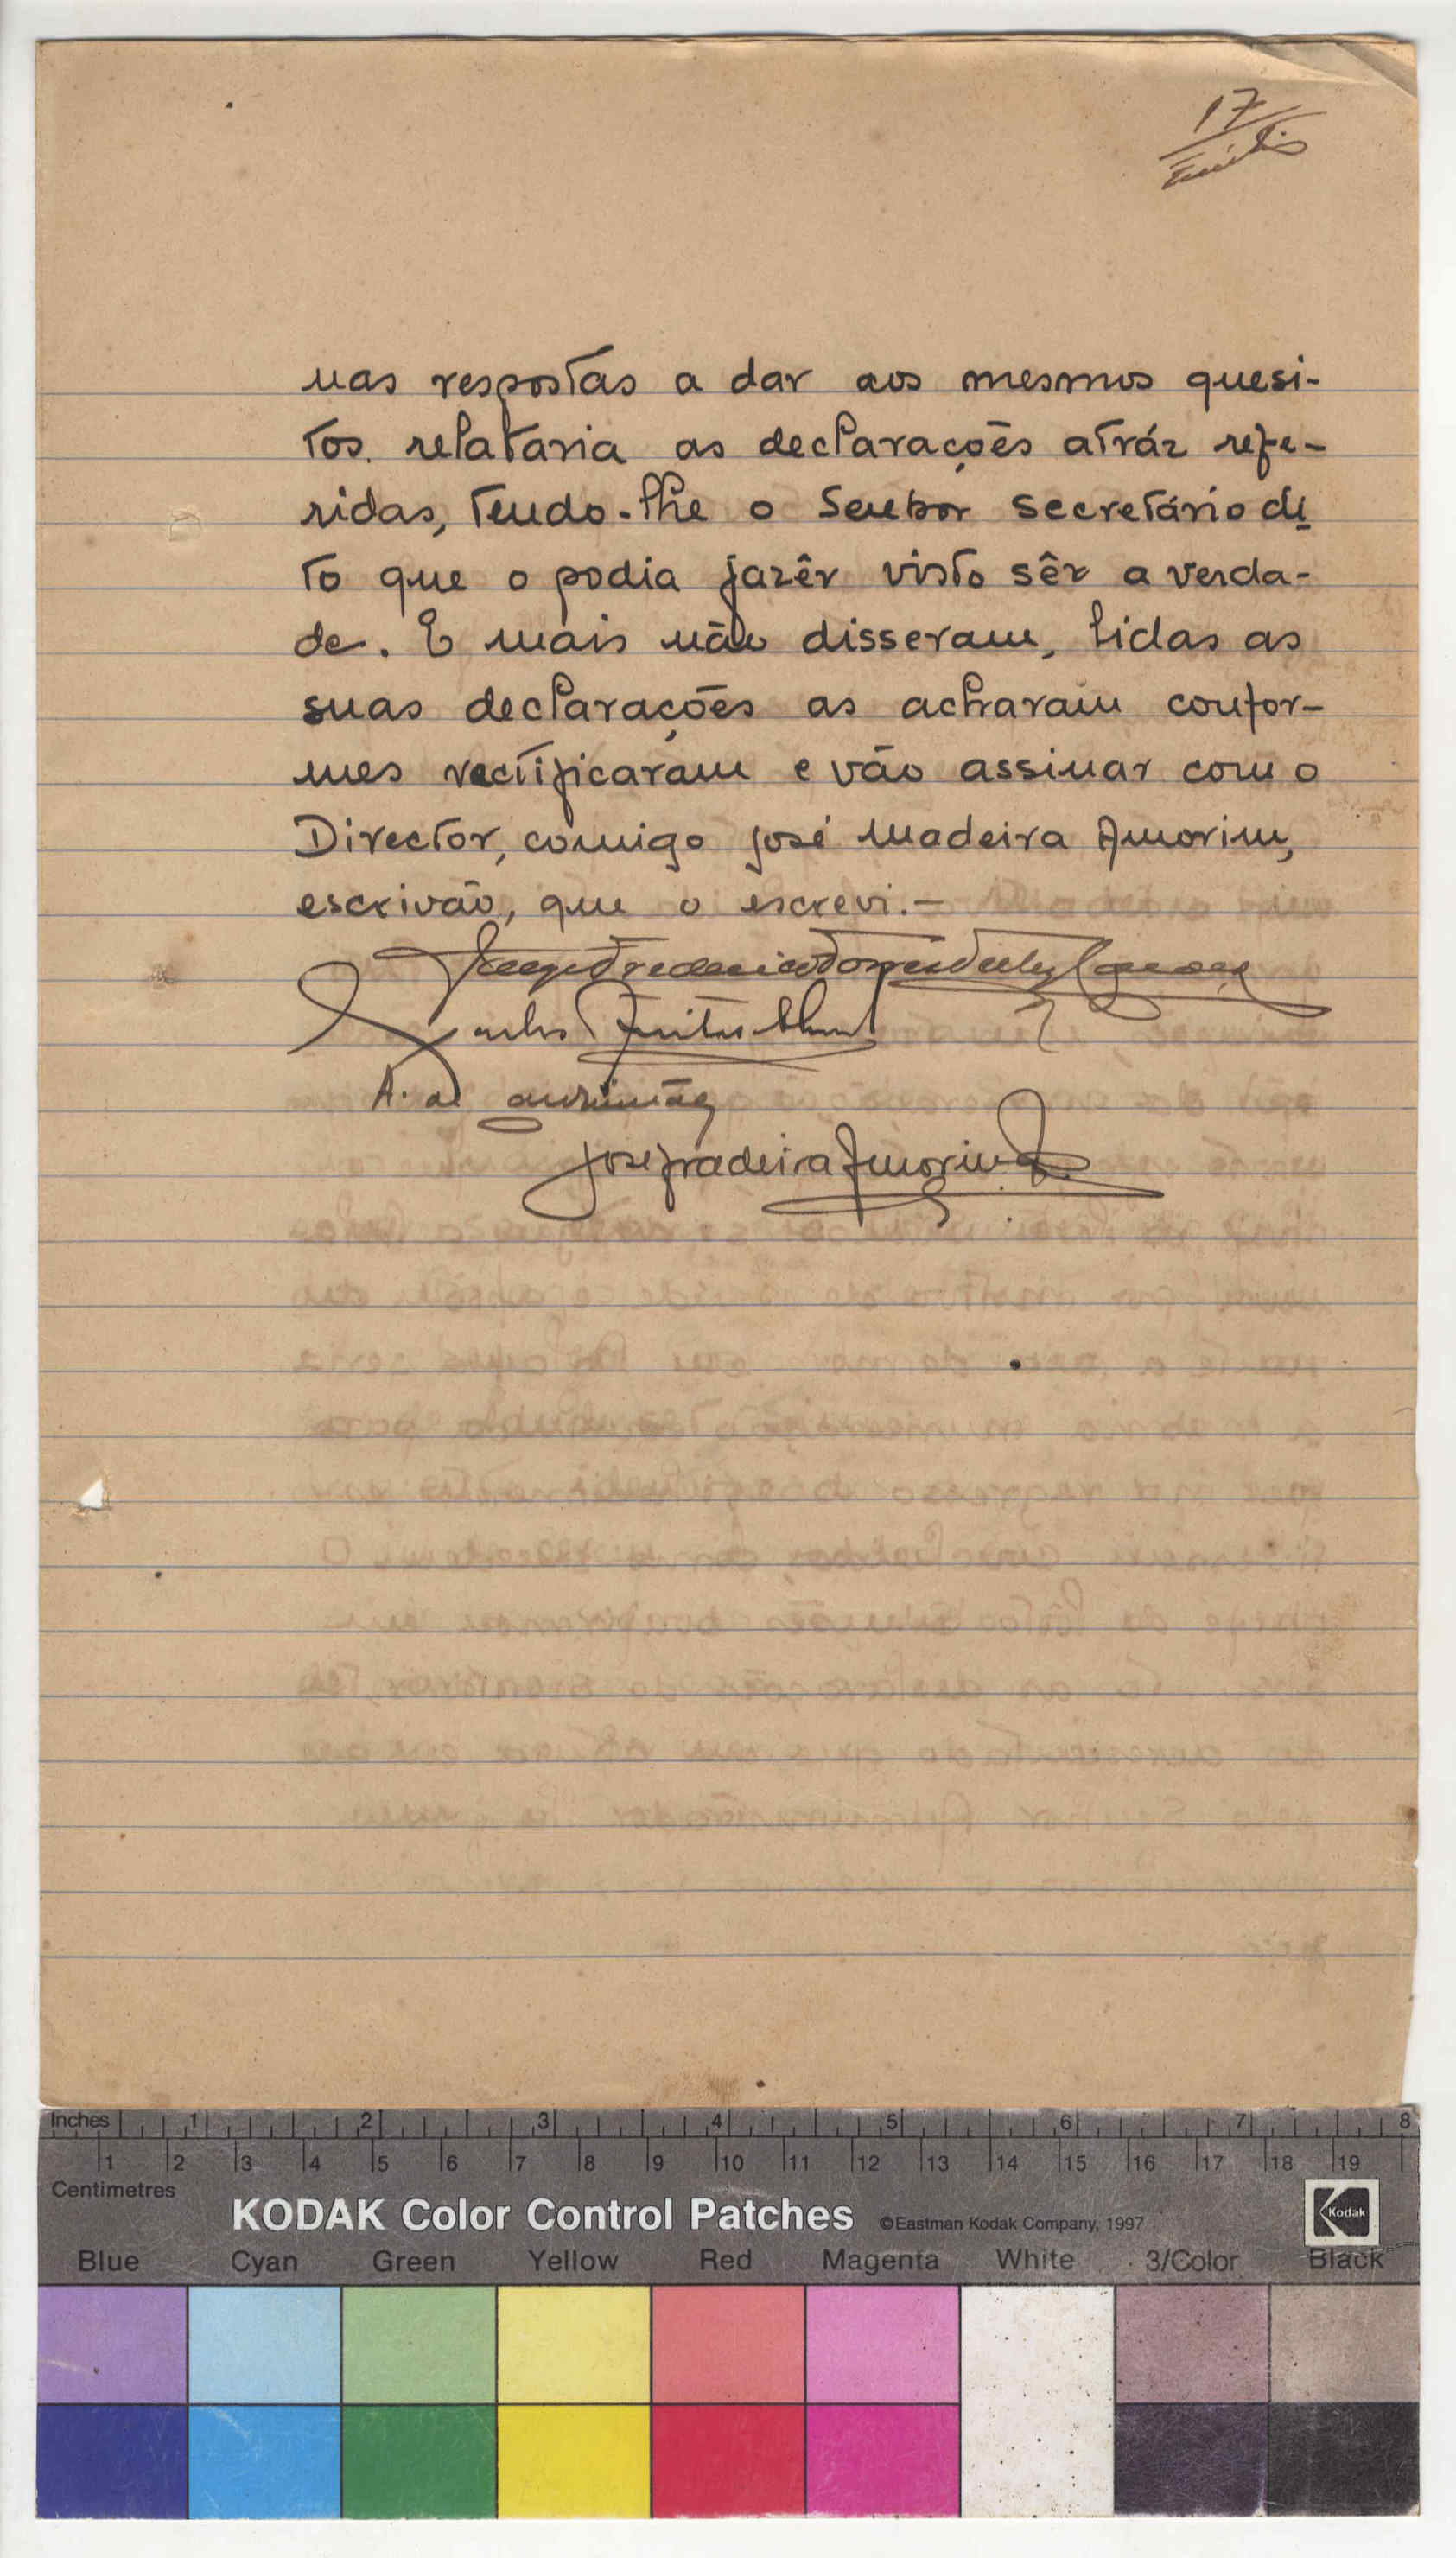 17
nas respostas a dar aos mesmos quesi-
tos. relataria as declarações atráz refe-
ridas, tendo-lhe o Senhor secretário di
to que o podia fazêr visto sêr a verda-
de. E mais não disseram, lidas as
suas declarações as acharam confor-
mes rectificaram e vão assinar com o
Director, comigo José Madeira Amorim,
escrivão, que o escrevi.-
Jorge Frederico Torres
Carlos Freitas
A. de
José Madeira Amorim
Inches 1 2 3 4 5 6 7 8
1 2 3 4 5 6 7 8 9 10 11 12 13 14 15 16 17 18 19
Centimetres
KODAK Color Control Patches ©Eastman Kodak Company, 1997 Kodak
Blue Cyan Green Yellow Red Magenta White 3/Color Black